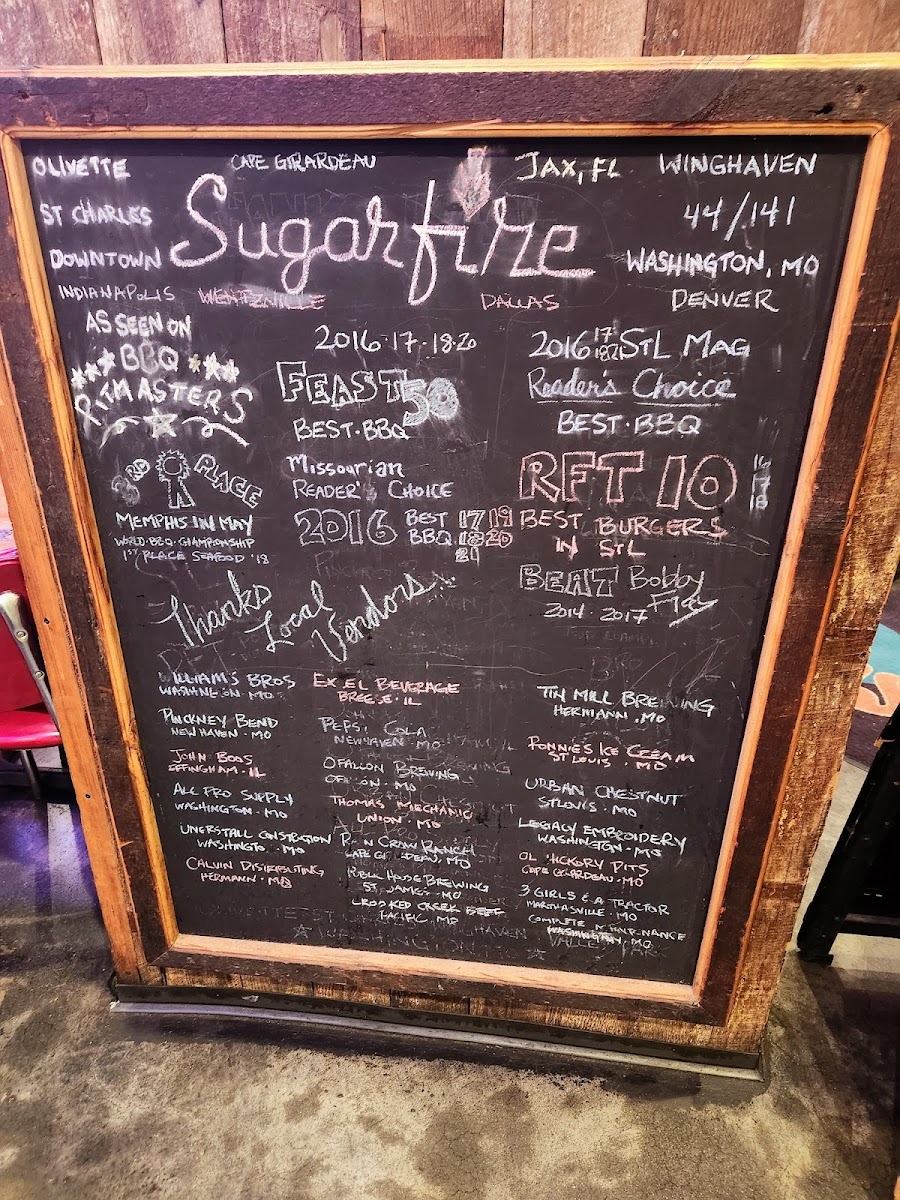 OLIVETTE
CAPE GIRARDEAU
JAX, FL
WINGHAVEN
ST CHARLES
Sugarfire
44/141
DOWNTOWN
WASHINGTON, MO
INDIANAPOLIS
WENTZVILLE
DALLAS
DENVER
AS SEEN ON
BBQ
PITMASTERS
2016·17·18·20
FEAST 50
BEST·BBQ
2016 17 STL MAG
Reader's Choice
BEST·BBQ
3RD PLACE
MEMPHIS IN MAY
WORLD·BBQ·CHAMPIONSHIP
1ST PLACE SEAFOOD '18
Missourian
READER'S CHOICE
2016 BEST 17 19
BBQ 18 20
21
RFT 10 16
17
18
BEST BURGERS
IN STL
BEAT Bobby
Flay
2014·2017
Thanks
Local
Vendors
WILLIAMS BROS
WASHINGTON MO
PINCKNEY BEND
NEW HAVEN·MO
JOHN BOOS
EFFINGHAM·IL
ALL PRO SUPPLY
WASHINGTON·MO
UNERSTALL CONSTRUCTION
WASHINGTO MO
CALVIN DISTERIBUTING
HERMANN·MO
EXCEL BEVERAGE
BREESE·IL
PEPSI COLA
NEWHAVEN·MO
OFALLON BREWING
OFALLON MO
THOMAS MECHANIC
UNION·MO
CROW RANCH
CAPE GIRARDEAU, MO
PUBLIC HOUSE BREWING
ST. JAMES·MO
CROOKED CREEK BEEF
PACIFIC·MO
TIN MILL BREWING
HERMANN·MO
RONNIE'S ICE CREAM
ST LOUIS·MO
URBAN CHESTNUT
STLOUIS·MO
LEGACY EMBROIDERY
WASHINGTON·MO
OL HICKORY PITS
CAPE GIRARDEAU·MO
3 GIRLS & A TRACTOR
MARTHASVILLE·MO
COMPLETE MAINTNANCE
WASHINGTON, MO
VALLEY PARK